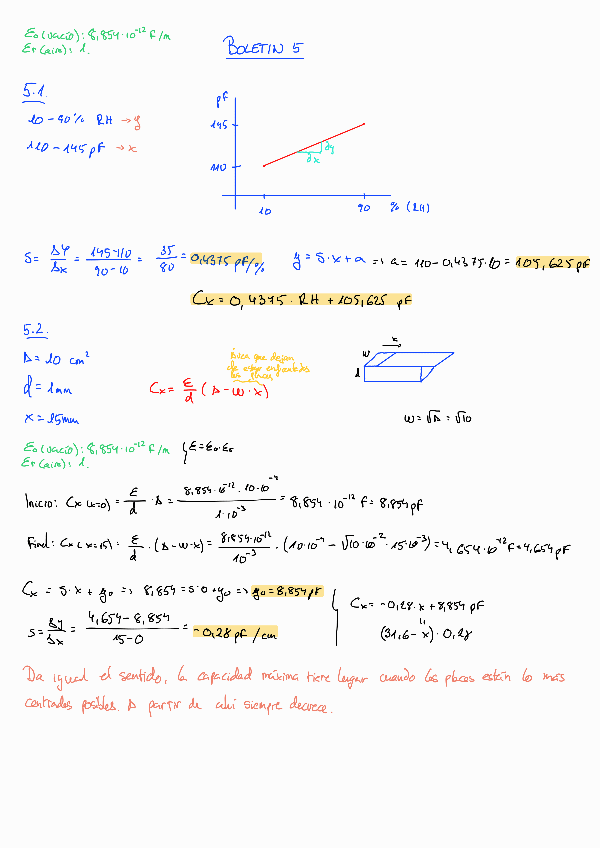 ε₀ (vacío): 8,854·10⁻¹² F/m
εr (aire): 1.
BOLETIN 5
5.1.
10-90% RH → y
110-145 pF → x
pF
145
110
∂y
∂x
10
90
% (RH)
S = Δy/Δx = 145-110/90-10 = 35/80 = 0,4375 pF/%
y = S·x + a => a = 110 - 0,4375·10 = 105,625 pF
Cx = 0,4375·RH + 105,625 pF
5.2.
A = 10 cm²
d = 1mm
x = 15mm
Área que dejan de estar enfrentadas las placas
Cx = ε/d (A - w·x)
x
w
l
w = √A = √10
ε₀ (vacío): 8,854·10⁻¹² F/m
εr (aire): 1.
ε = ε₀·εr
Inicio: Cx (x=0) = ε/d · A = 8,854·10⁻¹²·10·10⁻⁴/1·10⁻³ = 8,854·10⁻¹² F = 8,854 pF
Final: Cx (x=15) = ε/d · (A - w·x) = 8,854·10⁻¹²/10⁻³ · (10·10⁻⁴ - √10·10⁻²·15·10⁻³) = 4,654·10⁻¹² F = 4,654 pF
Cx = S·x + y₀ => 8,854 = S·0 + y₀ => y₀ = 8,854 pF
S = Δy/Δx = 4,654 - 8,854/15-0 = -0,28 pF/cm
Cx = -0,28·x + 8,854 pF
(31,6 - x)·0,28
Da igual el sentido, la capacidad máxima tiene lugar cuando las placas están lo más
centradas posibles. A partir de ahí siempre decrece.